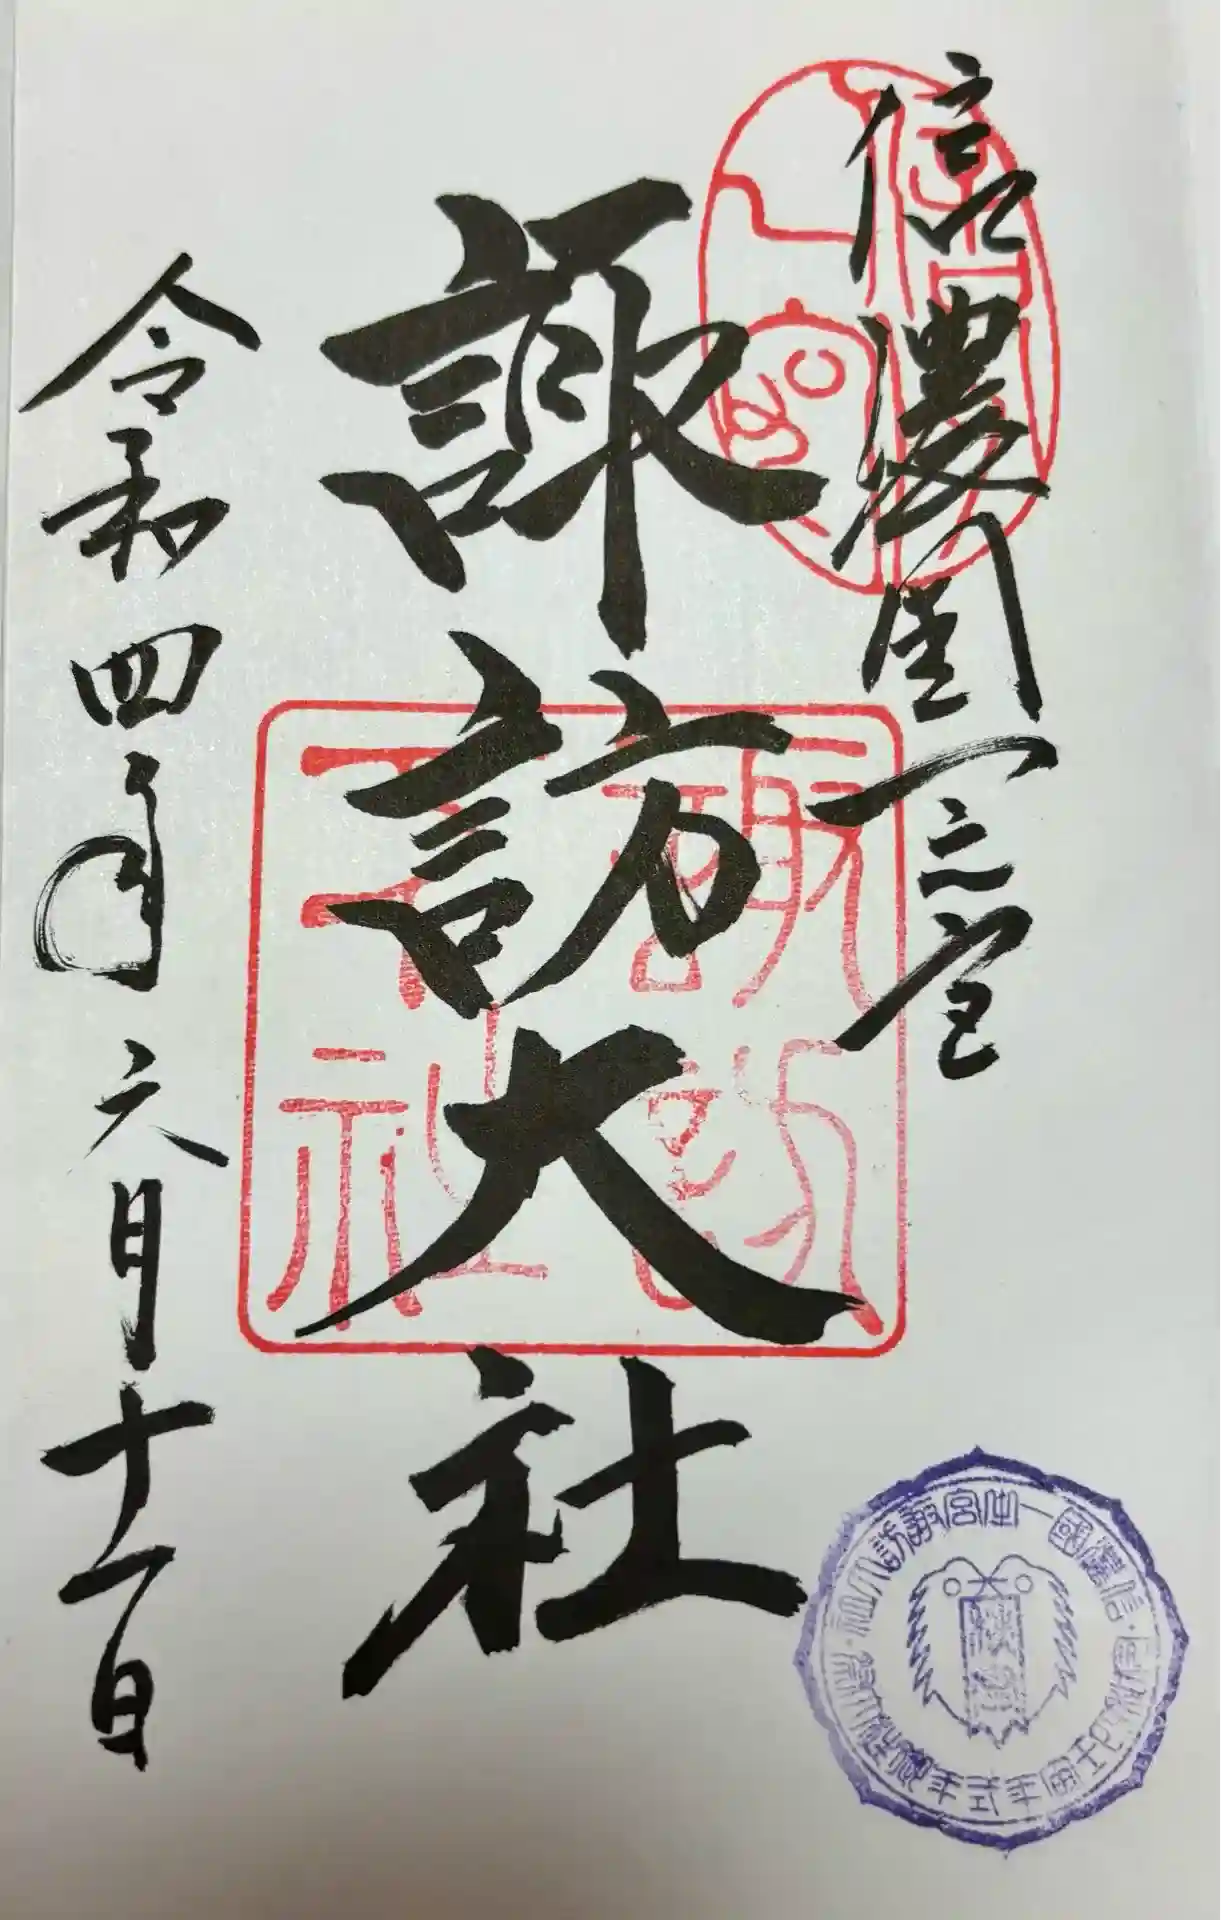 信濃國一之宮
諏訪大社
令和四年六月十一日
諏訪大社
信濃國一之宮諏訪大社